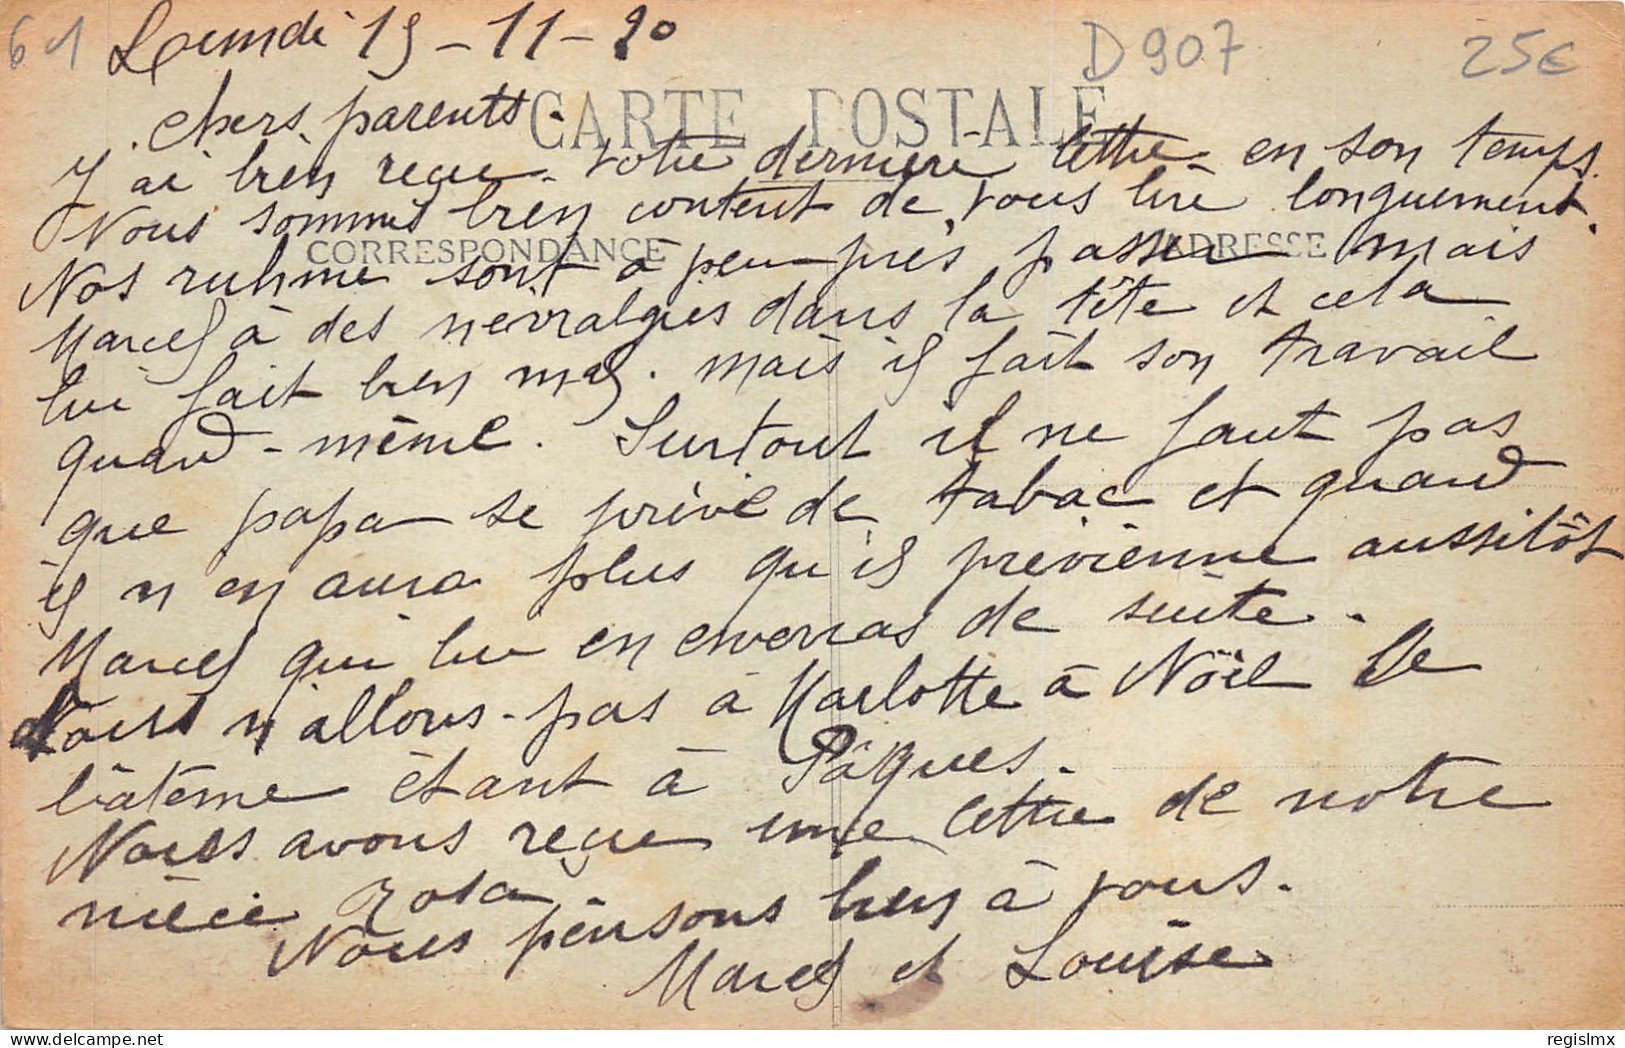 61 Lundi 15-11-20 D907 25€
CARTE POSTALE
chers parents.
J'ai bien reçue votre dernière lettre en son temps.
Nous sommes bien content de vous lire longuement.
CORRESPONDANCE ADRESSE
Nos ruhme sont à peu près passer mais
Marcel à des nevralgies dans la tête et cela
lui fait bien mal. mais il fait son travail
quand-même. Surtout il ne faut pas
que papa se prive de tabac et quand
il n en aura plus qu'il previenne aussitôt
Marcel qui lui en enverras de suite.
Nous n'allons pas à Marlotte à Nöel le
bâtême étant à Pâques.
Nous avons reçue une lettre de notre
nièce Rosa
Nous pensons bien à vous.
Marcel et Louise
regislmx